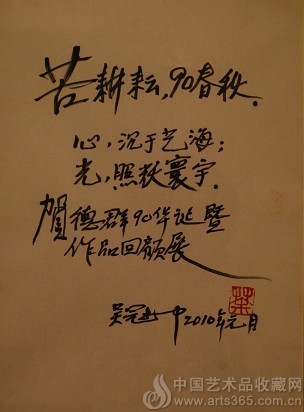 苦耕耘，90春秋．
心，沉于艺海；
光，照跃寰宇．
贺德群90华诞暨
作品回顾展
吴冠中2010年元月
荼
中国艺术品收藏网
www.arts365.com.cn